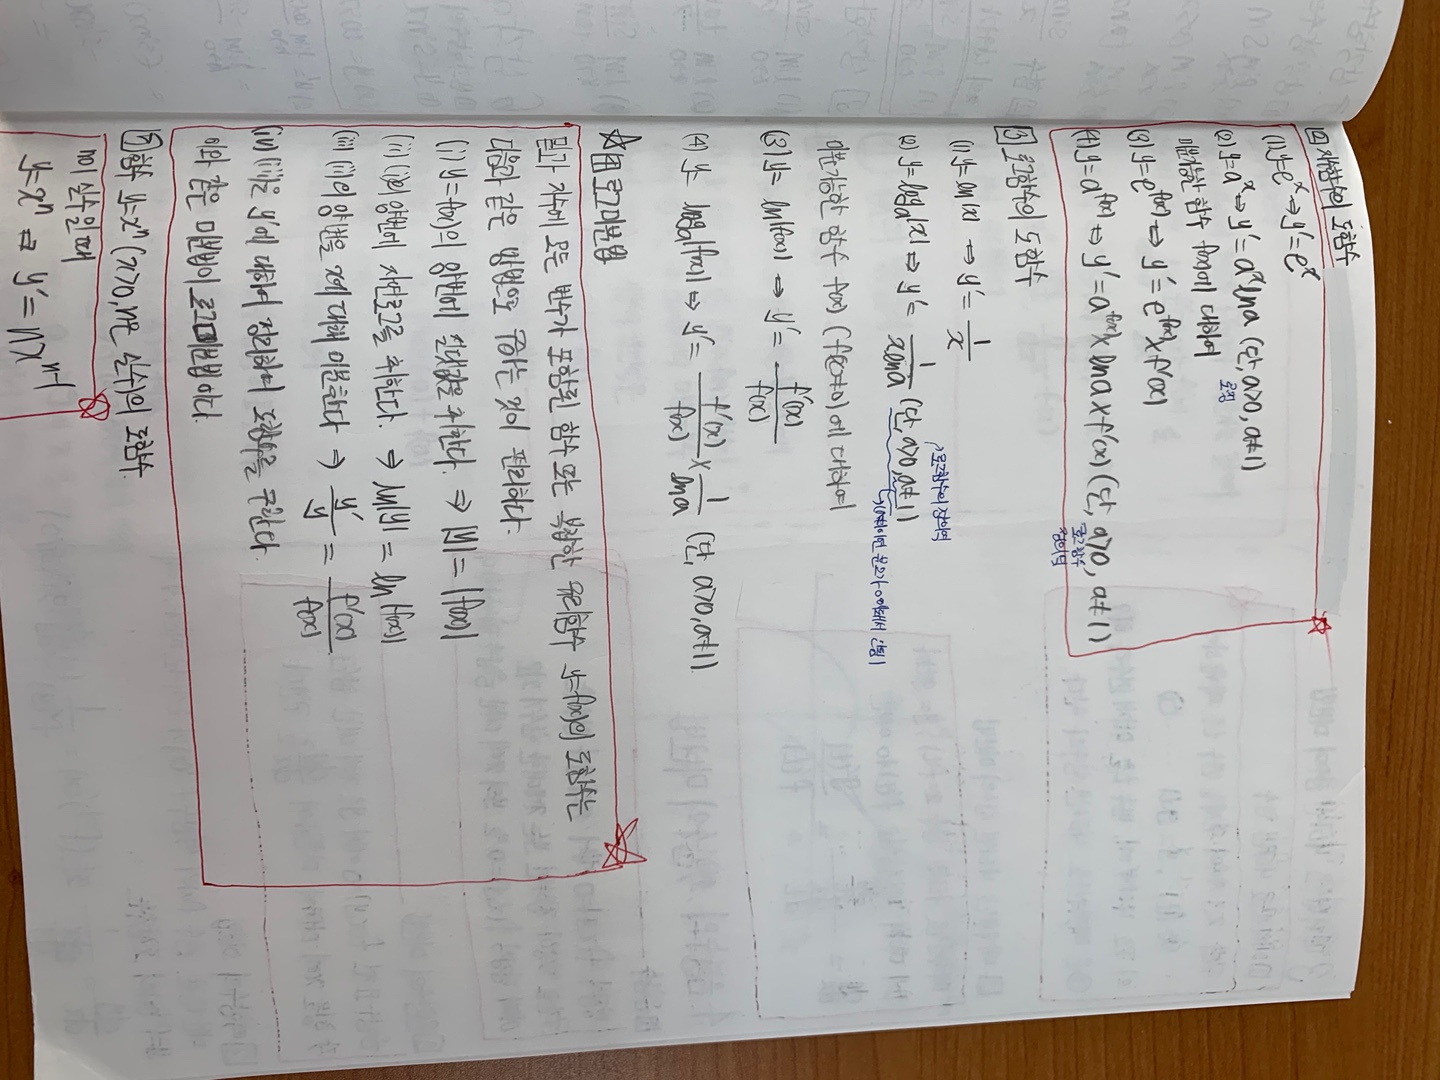 2 지수함수의 도함수
(1) y=e^x ⇒ y'=e^x
(2) y=a^x ⇒ y'=a^x lna (단, a>0, a≠1)
미분가능한 함수 f(x)에 대하여
(3) y=e^f(x) ⇒ y'=e^f(x) × f'(x)
(4) y=a^f(x) ⇒ y'=a^f(x) × lna × f'(x) (단, a>0, a≠1)
3 로그함수의 도함수
(1) y=ln|x| ⇒ y'=1/x
(2) y=log_a|x| ⇒ y'=1/(xlna) (단, a>0, a≠1)
로그함수의 정의역
미분가능한 함수 f(x) (f(x)≠0)에 대하여
(3) y=ln|f(x)| ⇒ y'=f'(x)/f(x)
(4) y=log_a|f(x)| ⇒ y'=f'(x)/f(x) × 1/lna (단, a>0, a≠1)
☆ 4 로그미분법
밑과 지수에 모두 변수가 포함된 함수 또는 복잡한 유리함수 y=f(x)의 도함수는
다음과 같은 방법으로 구하는 것이 편리하다.
(i) y=f(x)의 양변에 절댓값을 취한다. ⇒ |y|=|f(x)|
(ii) (i)의 양변에 자연로그를 취한다. ⇒ ln|y|=ln|f(x)|
(iii) (ii)의 양변을 x에 대해 미분한다 ⇒ y'/y=f'(x)/f(x)
(iv) (iii)을 y'에 대하여 정리하여 도함수를 구한다.
이와 같은 미분법이 로그미분법이다.
5 함수 y=x^n (x>0, n은 실수)의 도함수
n이 실수일 때
y=x^n ⇒ y'=nx^n-1